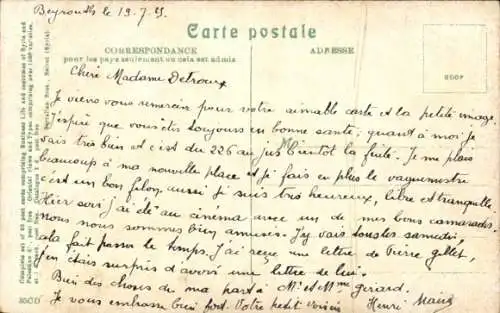 Beyrouth le 19.7.25.
Carte postale
CORRESPONDANCE
pour les pays seulement ou cela est admis
ADRESSE
Chère Madame Detroux
Je viens vous remercier pour votre aimable carte et la petite image.
J'espère que vous êtes toujours en bonne santé; quant à moi je
vais très bien et c'est du 226 au jus bientôt la fuite. Je me plais
beaucoup à ma nouvelle place et je fais en plus le vaguemestre
c'est un bon filon, aussi je suis très heureux, libre et tranquille
Hier soir j'ai été au cinéma avec un de mes bons camarades.
nous nous sommes bien amusés. J'y vais tous les samedis,
cela fait passer le temps. J'ai reçu une lettre de Pierre Gillet,
j'en étais surpris d'avoir une lettre de lui.
Bien des choses de ma part à Mr et Mme Gérard.
Je vous embrasse bien fort. Votre petit voisin Henri
35CD